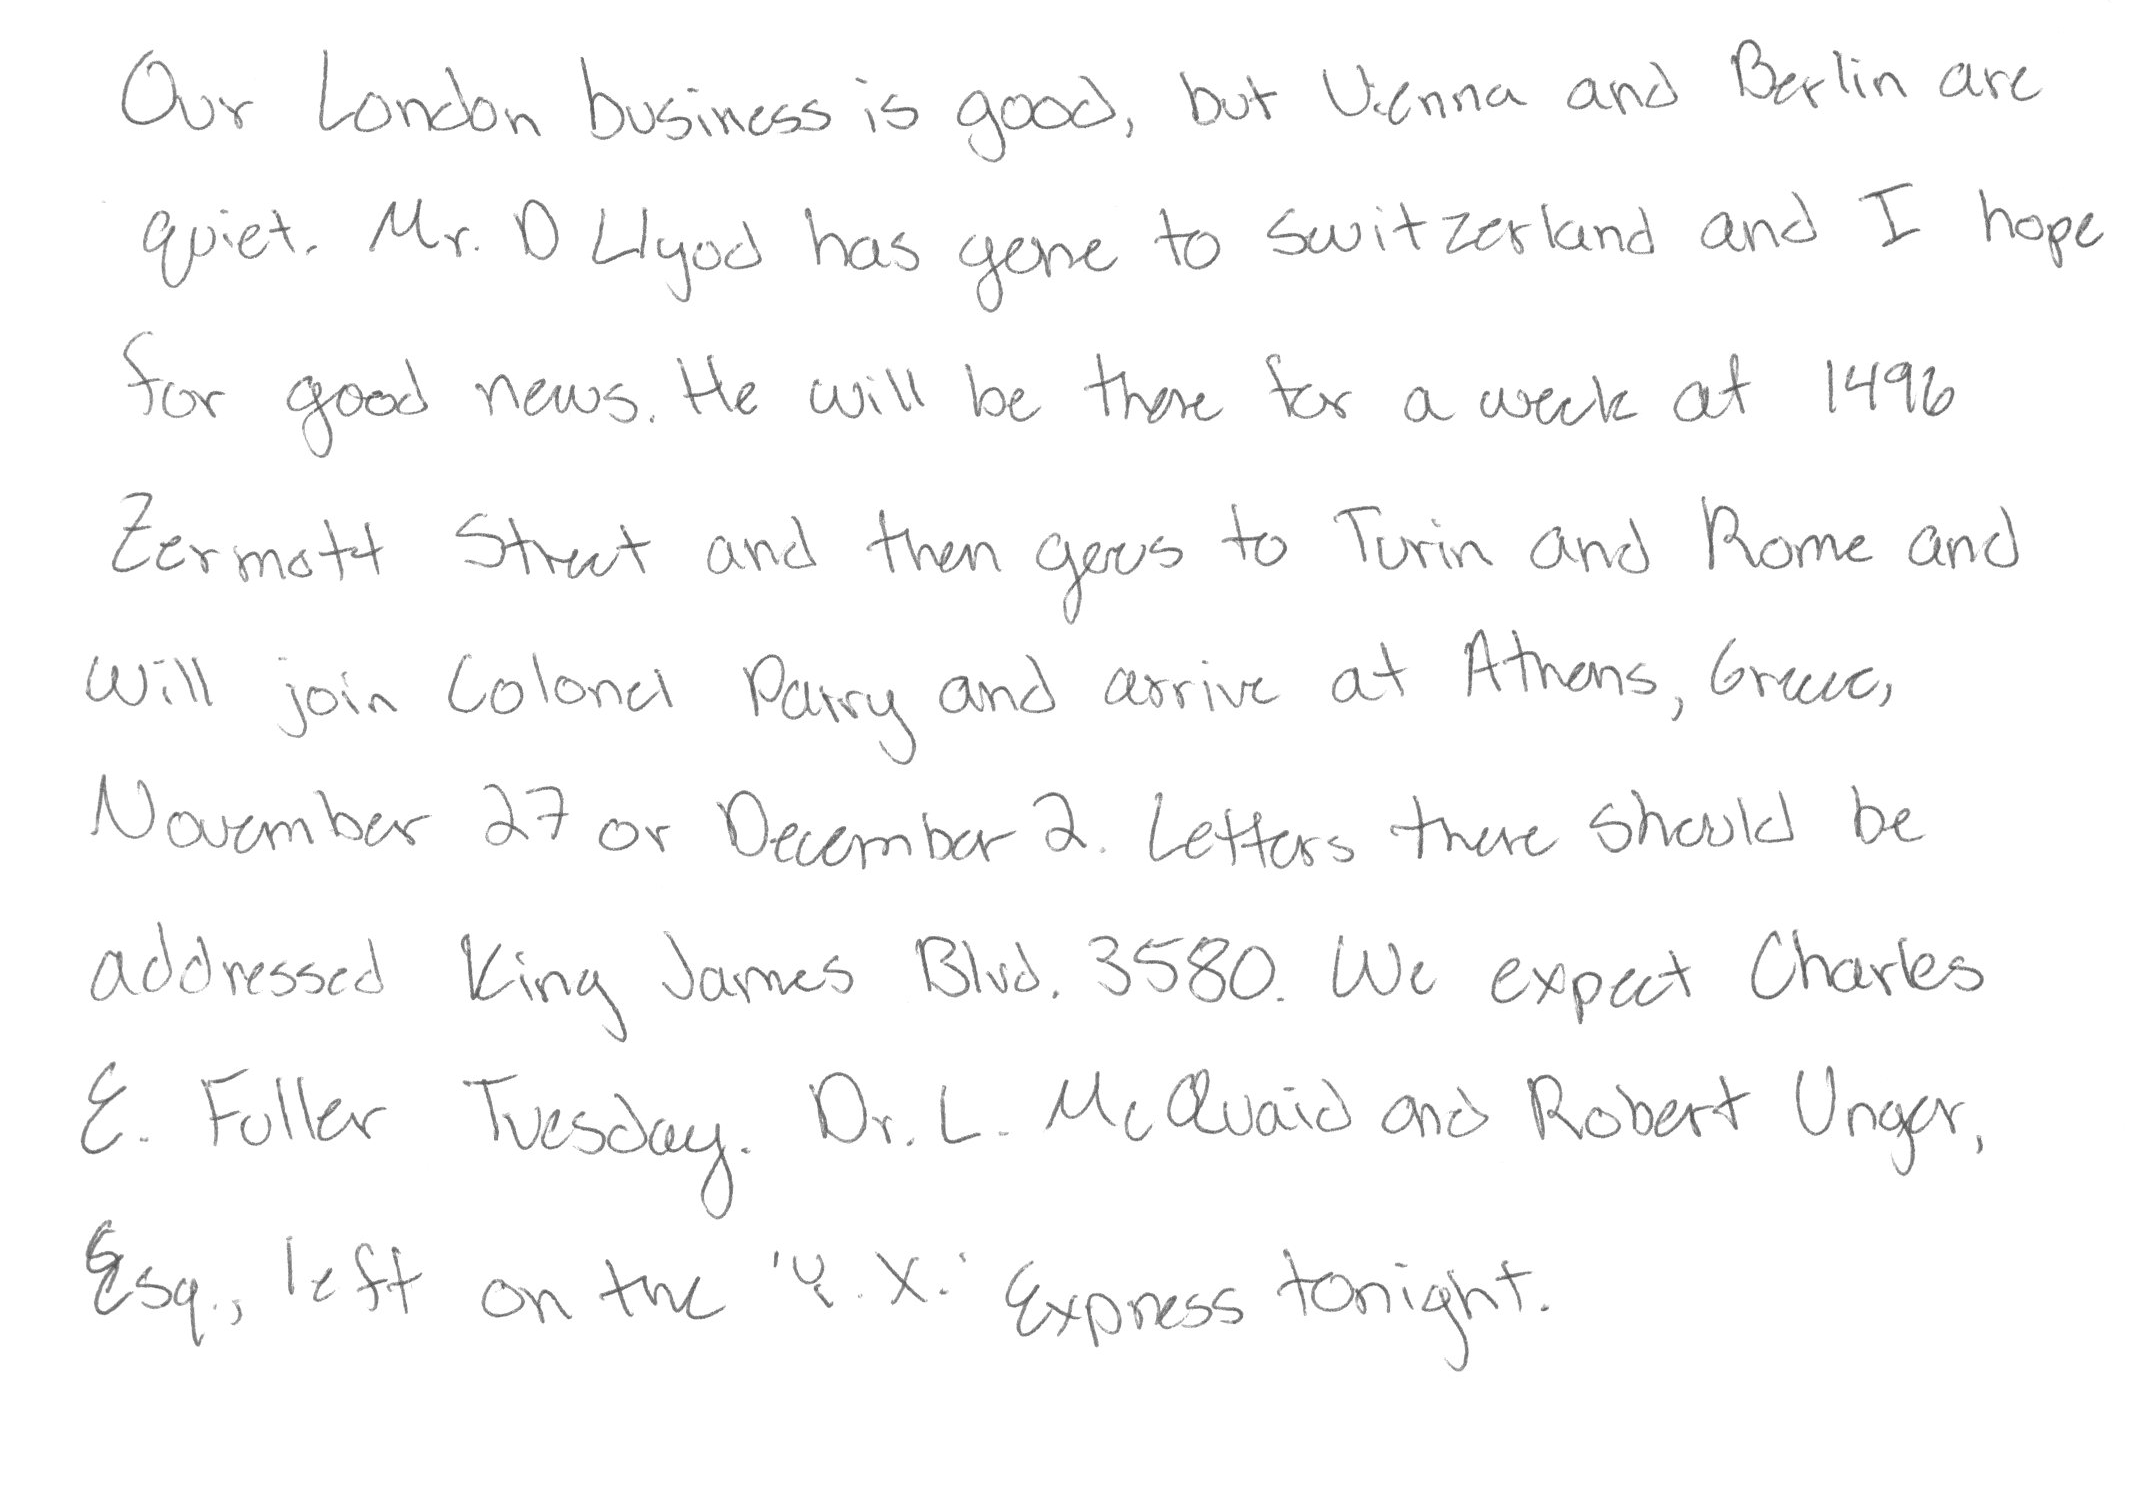 Our London business is good, but Vienna and Berlin are
quiet. Mr. D Llyod has gone to Switzerland and I hope
for good news. He will be there for a week at 1496
Zermott Street and then goes to Turin and Rome and
will join Colonel Parry and arrive at Athens, Greece,
November 27 or December 2. Letters there should be
addressed King James Blvd. 3580. We expect Charles
E. Fuller Tuesday. Dr. L. McQuaid and Robert Unger,
Esq., left on the 'Y. X.' Express tonight.